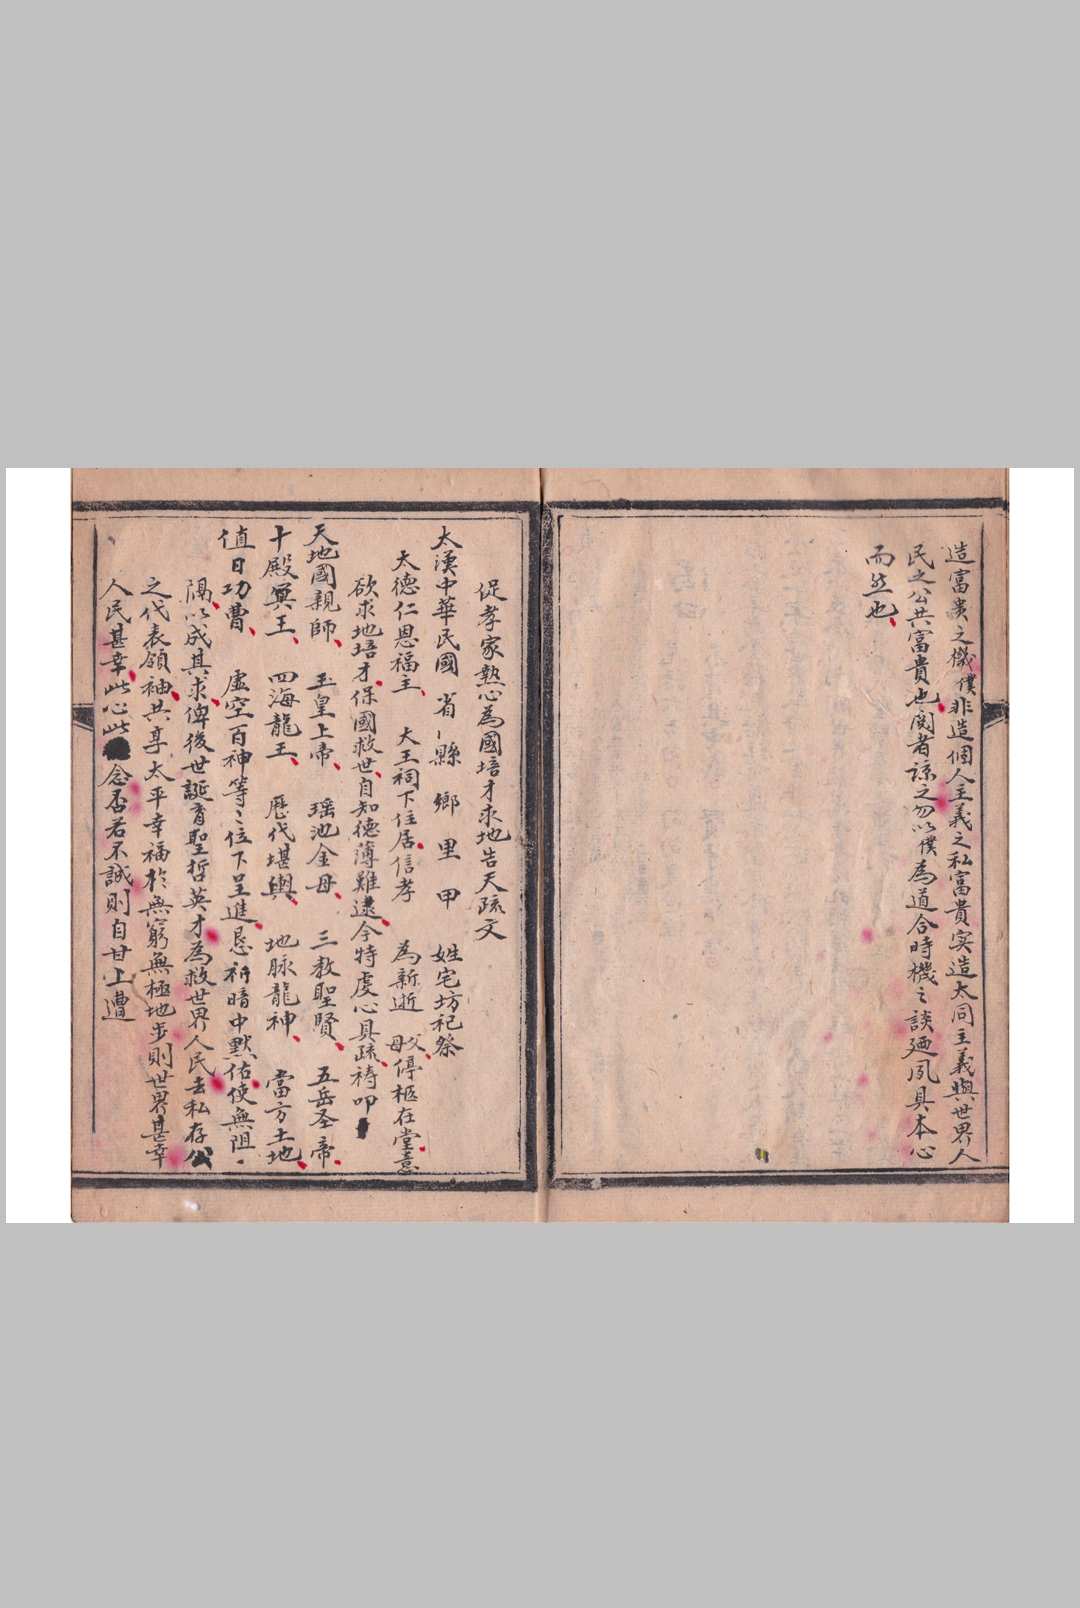 造富贵之機僕非造個人主義之私富貴实造太同主義與世界人
民之公共富貴也閱者諒之勿以僕為道合時機之談廼夙具本心
而然也
促孝家熱心為國培才求地告天疏文
太漢中華民國 省 縣 鄉 里 甲 姓宅坊祀祭
太德仁恩福主 大王祠下住居信孝 為新逝 父母停柩在堂意
欲求地培才保國救世自知德薄難逮今特虔心具疏祷叩
天地國親師 玉皇上帝 瑶池金母 三教聖賢 五岳圣帝
十殿冥王 四海龍王 歷代堪輿 地脉龍神 當方土地
值日功曹 虛空百神等〻位下呈進恳祈暗中默佑使無阻
隔以成其求俾後世誕育聖哲英才為救世界人民去私存公
之代表領袖共享太平幸福於無窮無極地步則世界甚幸
人民甚幸此心此念否若不誠則自甘上遭